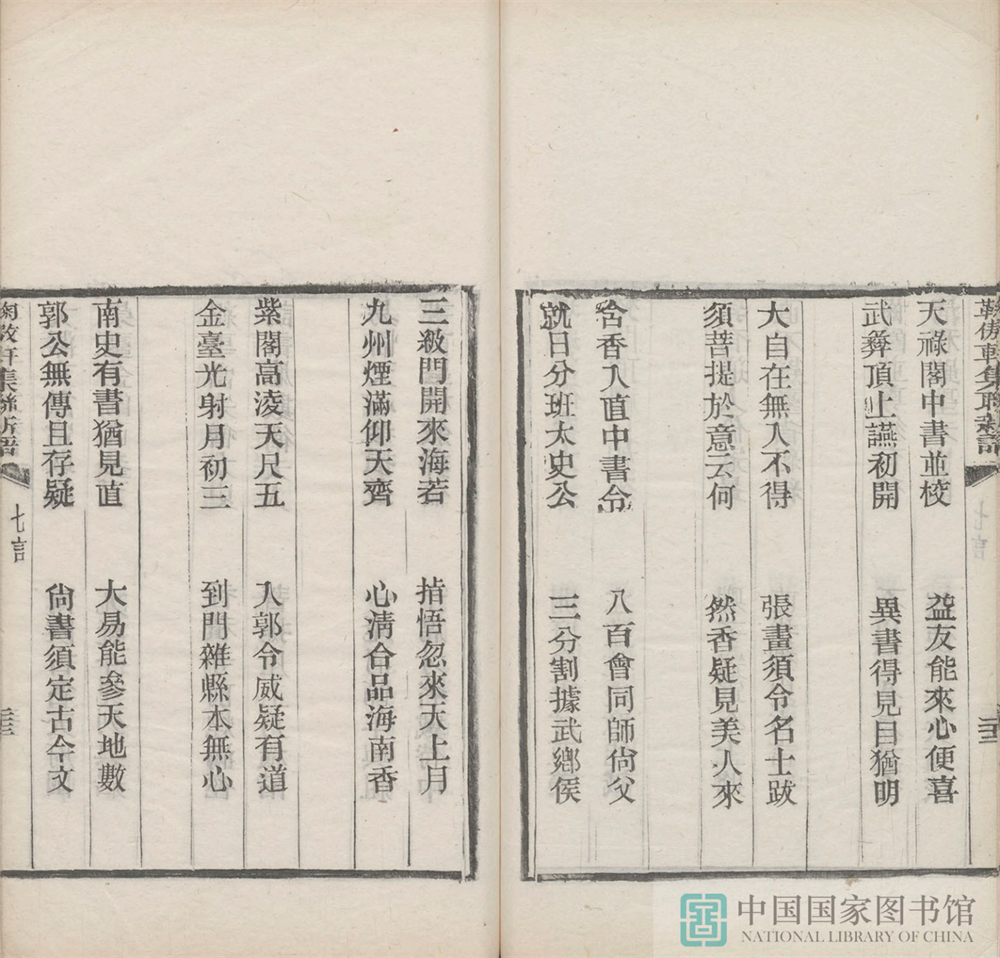 天祿閣中書並校
益友能來心便喜
武彝頂上讌初開
異書得見目猶明
大自在無入不得
張畫須令名士跋
須菩提於意云何
然香疑見美人來
含香入直中書令
八百會同師尙父
就日分班太史公
三分割據武鄉侯
三級門開來海若
指悟忽來天上月
九州煙滿仰天齊
心淸合品海南香
紫閣高淩天尺五
入郭令威疑有道
金臺光射月初三
到門雜縣本無心
南史有書猶見直
大易能參天地數
郭公無傳且存疑
尙書須定古今文
七言
中国国家图书馆
NATIONAL LIBRARY OF CHINA